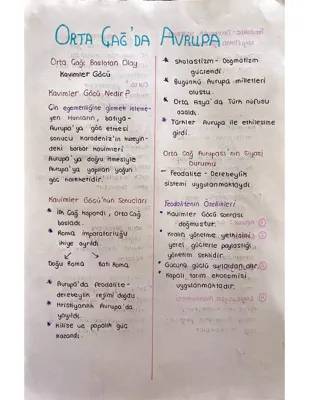 ORTA ÇAĞ'DA AVRUPA
Orta Çağı Başlatan Olay
Kavimler Göçü
Kavimler Göçü Nedir?
Çin egemenliğine girmek isteme-
yen Hunların, batıya-
Avrupa'ya göç etmesi
sonucu Karadeniz'in kuzeyin-
deki barbar kavimleri
Avrupa'ya doğru itmesiyle
Avrupa'ya yapılan yoğun
göç hareketidir.
Kavimler Göçü'nün Sonuçları
* İlk Çağ kapandı, Orta Çağ
başladı.
* Roma imparatorluğu
ikiye ayrıldı
Doğu Roma Batı Roma
* Avrupa'da feodalite-
derebeylik rejimi doğdu
* Hristiyanlık Avrupa'da
yayıldı.
* Kilise ve papalık güç
kazandı.
* Skolastizm - Dogmatizm
güçlendi.
* Bugünkü Avrupa milletleri
oluştu.
* Orta Asya'da Türk nüfusu
azaldı.
* Türkler Avrupa ile etkileşime
girdi.
Orta Çağ Avrupası'nın Siyasi
Durumu
- Feodalite - Derebeylik
sistemi uygulanmaktaydı
Feodalitenin Özellikleri
* Kavimler Göçü sonrası
doğmuştur.
* Kralın yönetme yetkisini
yerel güçlerle paylaştığı
yönetim şeklidir.
* Kapalı tarım ekonomisi
uygulanmaktadır.